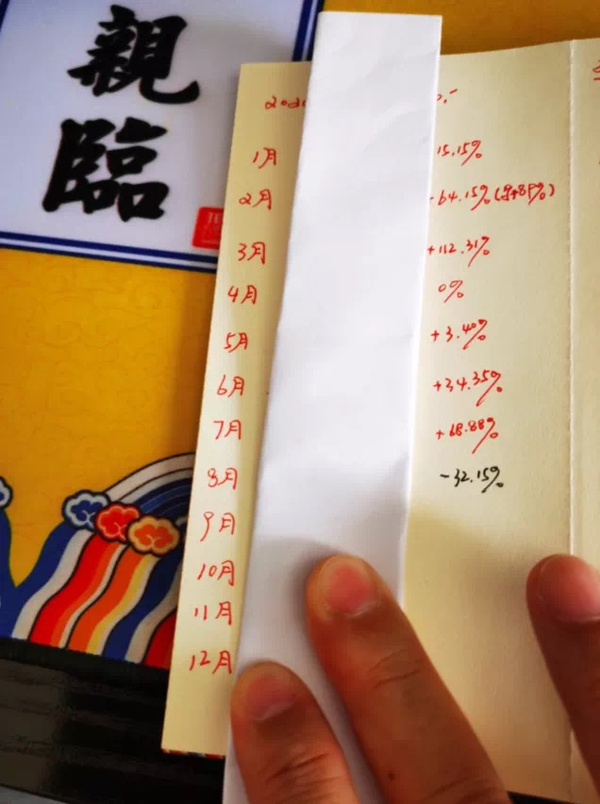 親
臨
2020
1月 15.15%
2月 -64.15%
3月 +112.31%
4月 0%
5月 +3.40%
6月 +34.35%
7月 +68.88%
8月 -32.15%
9月
10月
11月
12月